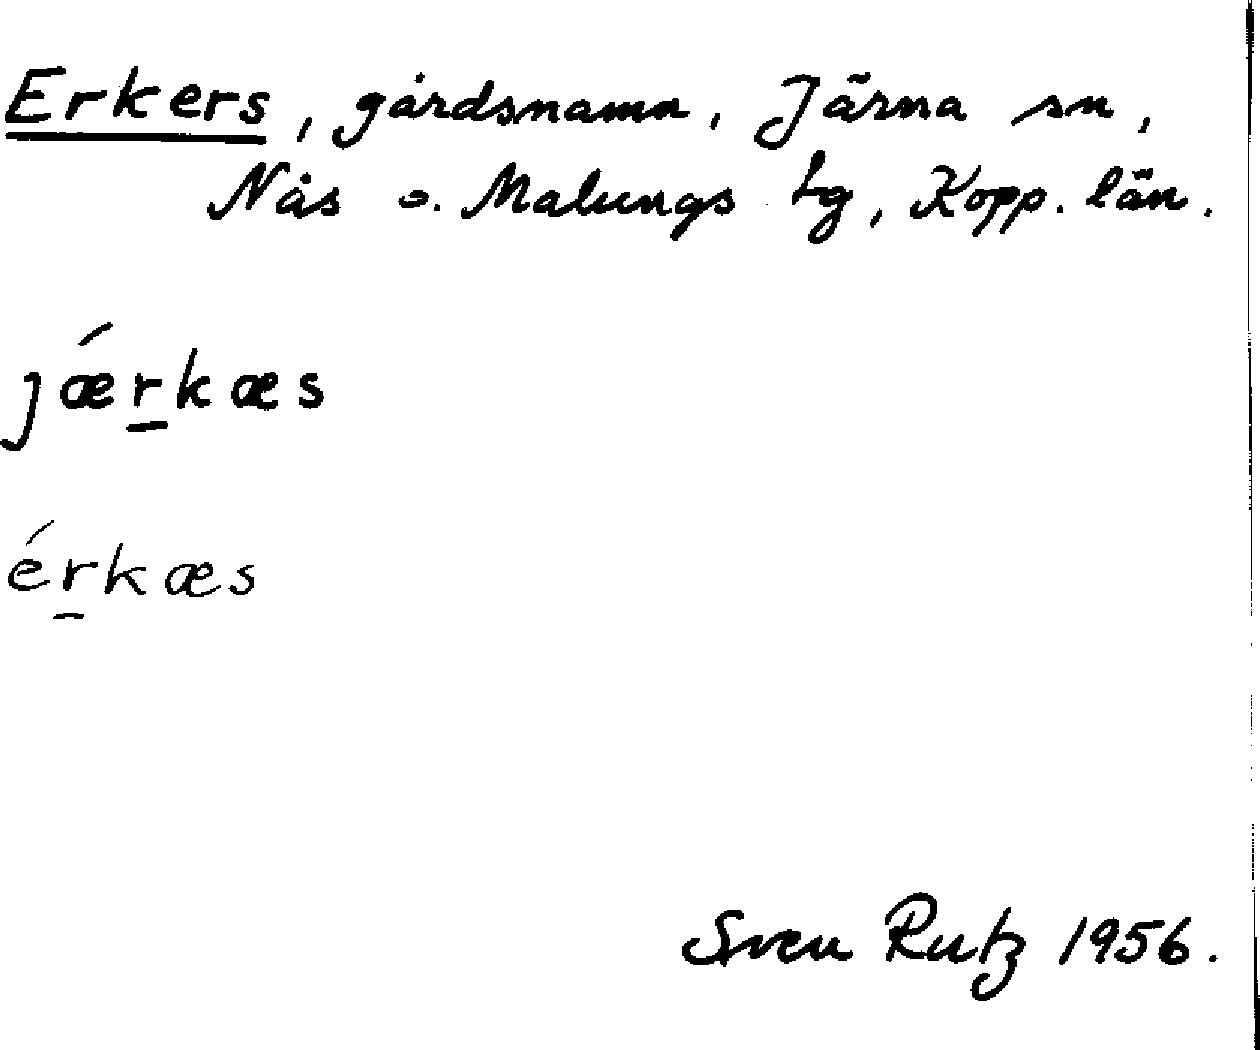 Erkers, gårdsnamn, Järna sn,
Nås o. Malungs tg, Kopp. län.
jǽr̲kæs
ér̲kæs
Sven Rutz 1956.